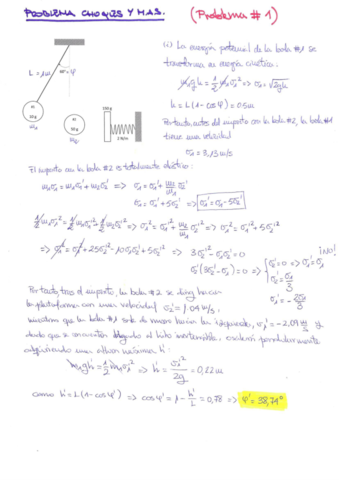 PROBLEMA CHOQUES Y M.A.S.
(Problema # 1)
(i) La energía potencial de la bola #1 se
transforma en energía cinética:
m₁gh = 1/2 m₁v₁² => v₁ = √2gh
h = L(1 - cosφ) = 0.5m
Por tanto antes del impacto con la bola #2, la bola #1
tiene una velocidad
v₁ = 3,13 m/s
L = 1m
60° = φ
#1
50 g
m₁
#2
m₂
El impacto con la bola #2 es totalmente elástico:
m₁v₁ = m₁v₁' + m₂v₂' => v₁ = v₁' + m₂/m₁ v₂'
v₁ = v₁' + 5v₂' => v₁' = v₁ - 5v₂'
1/2 m₁v₁² = 1/2 m₁v₁'² + 1/2 m₂v₂'² => v₁² = v₁'² + m₂/m₁ v₂'² => v₁² = v₁'² + 5v₂'²
=> v₁² = v₁² + 25v₂'² - 10v₁v₂' + 5v₂'² => 3v₂'² - v₁v₂' = 0
¡NO!
v₂'(3v₂' - v₁) = 0 => v₂' = 0 => v₁' = v₁
v₂' = v₁/3
v₁' = - 2v₁/3
Por tanto tras el impacto, la bola #2 se dirige hacia
la plataforma con una velocidad v₂' = 1.04 m/s,
mientras que la bola #1 sale de nuevo hacia la izquierda, v₁' = -2,09 m/s y
dado que se encuentra ligado al hilo inextensible, oscilará pendularmente
adquiriendo una altura máxima h':
m₁gh' = 1/2 m₁v₁'² => h' = v₁'²/2g = 0,22 m
como h' = L(1 - cosφ') => cosφ' = 1 - h'/L = 0,78 => φ' = 38,74°